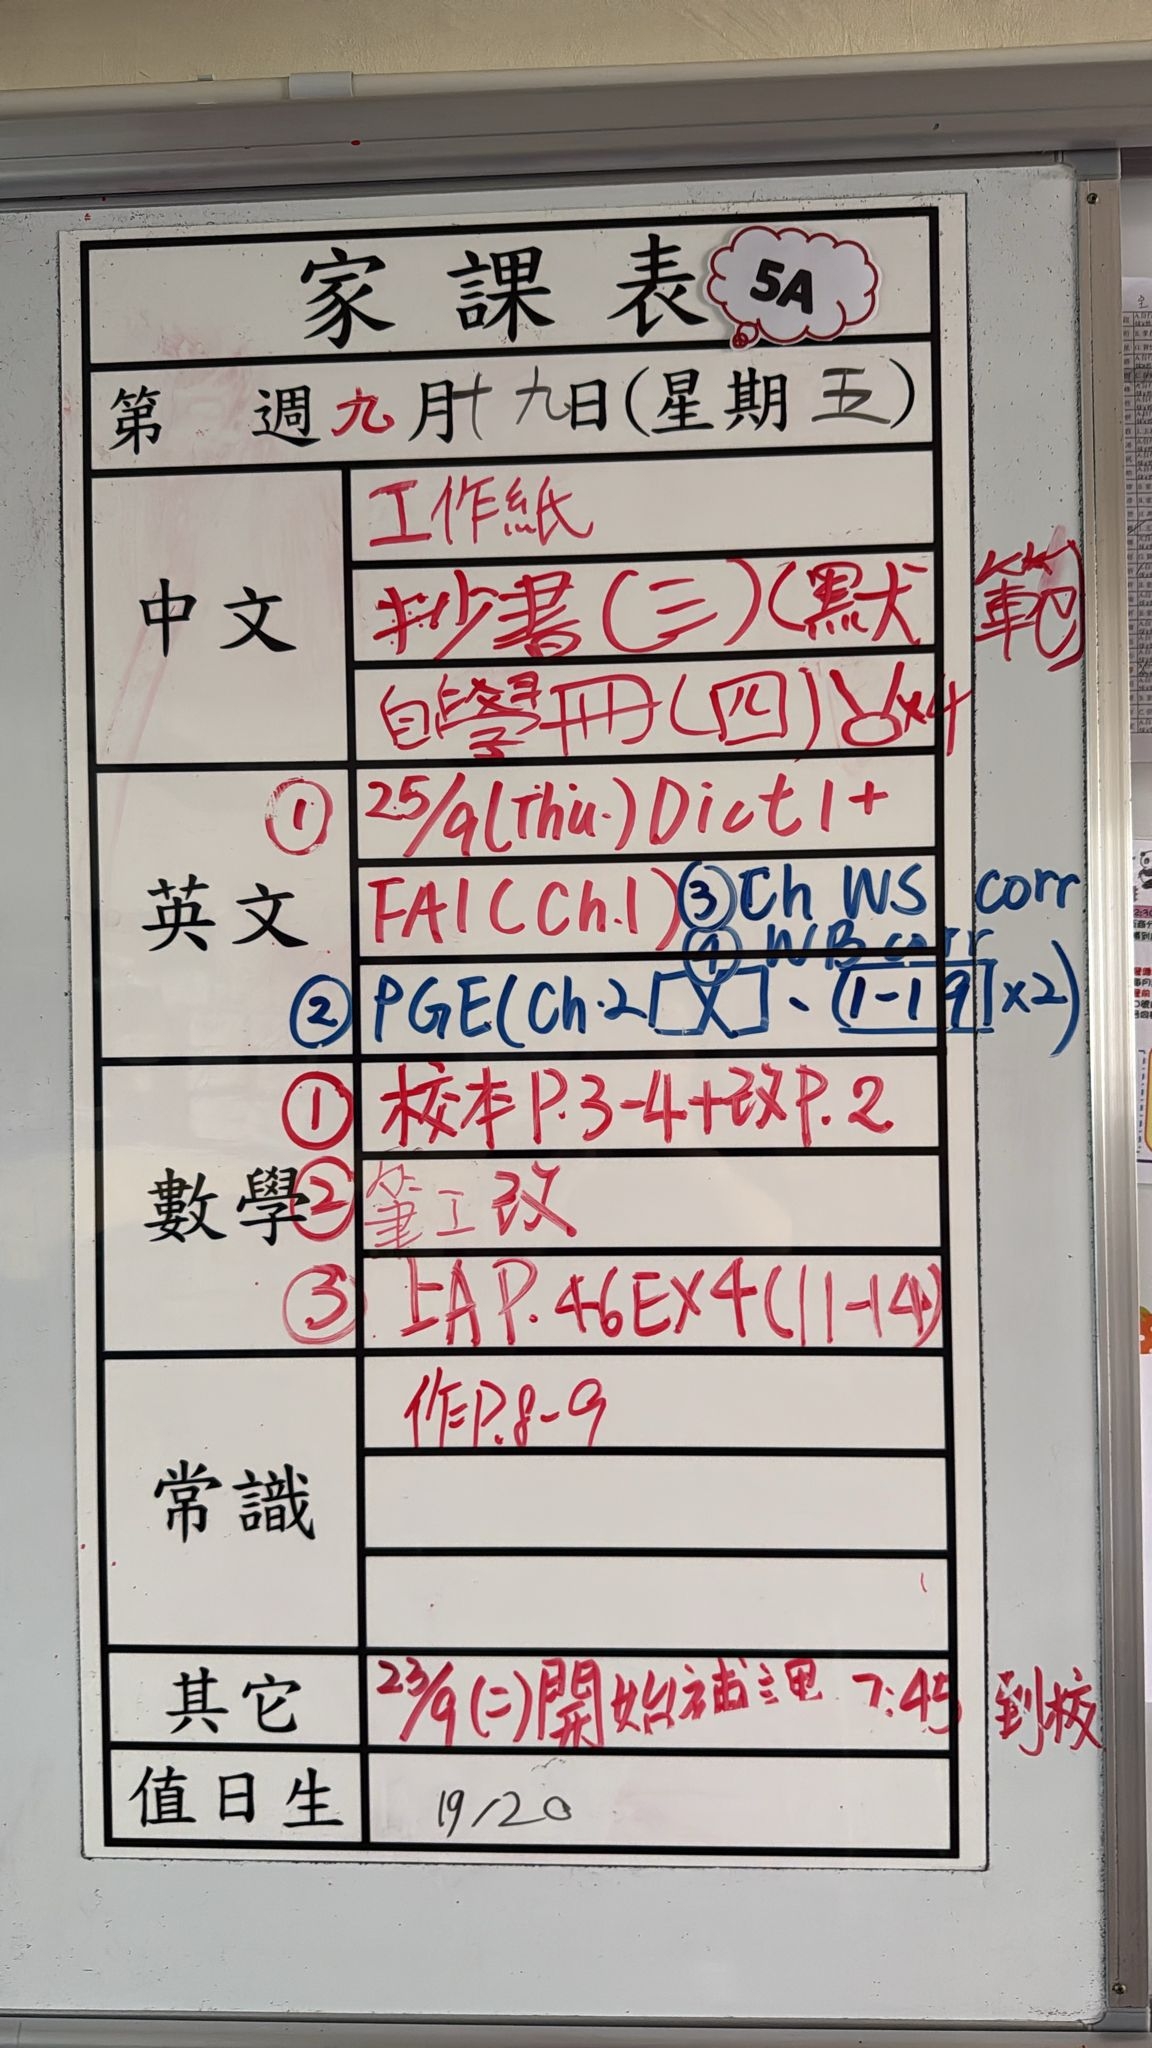 家課表 5A
第 週九月十九日(星期五)
中文
工作紙
抄書(三)(默 範
自學冊(四) x4
英文
① 25/9(Thu.) Dict 1+
FA1(Ch.1) ③ Ch WS corr
④ WB corr
② PGE(Ch.2[X]、(1-19]x2)
數學
① 校本P.3-4+改P.2
② 筆工改
③ 上A P.46EX4(11-14)
常識
作P.8-9
其它
23/9(二)開始補課 7:45 到校
值日生
19/20